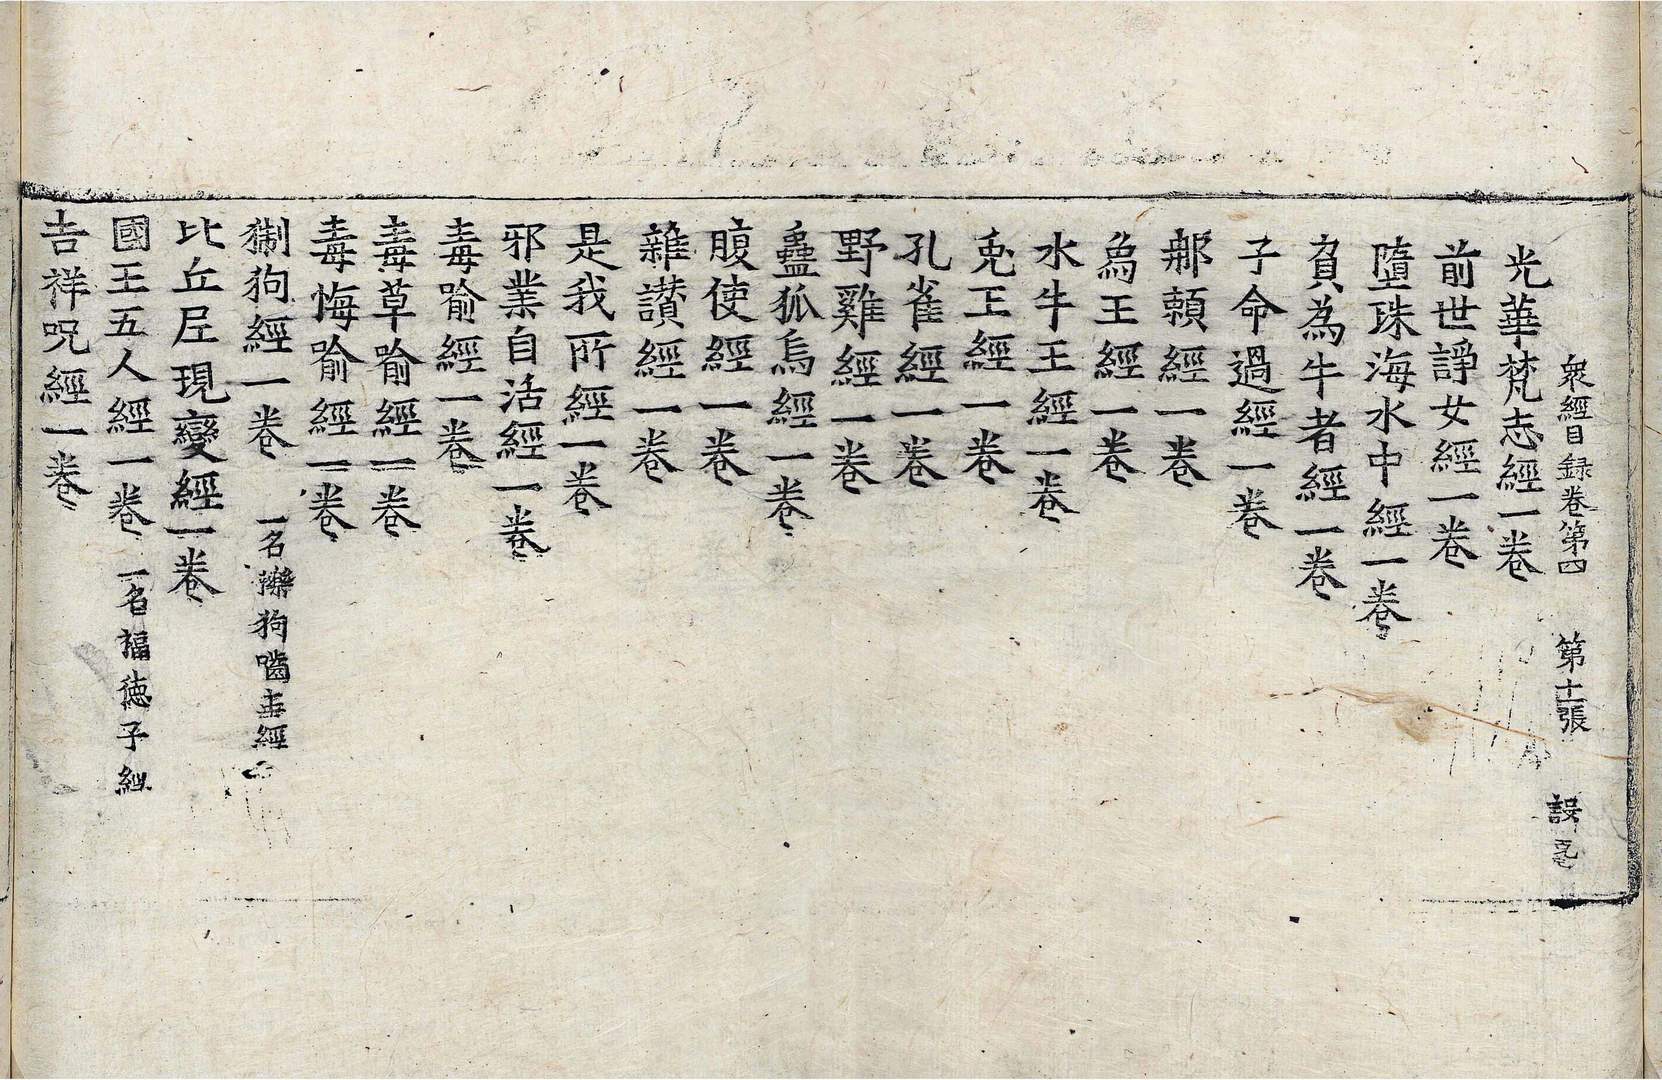 衆經目録卷第四　第十一張　設
光華梵志經一卷
前世諍女經一卷
墮珠海水中經一卷
負為牛者經一卷
子命過經一卷
郍頼經一卷
烏王經一卷
水牛王經一卷
兎王經一卷
孔雀經一卷
野雞經一卷
蠱狐烏經一卷
腹使經一卷
雜讃經一卷
是我所經一卷
邪業自活經一卷
毒喻經一卷
毒草喻經一卷
毒悔喻經一卷
猘狗經一卷　一名㩧狗嚙主經
比丘尼現變經一卷
國王五人經一卷　一名福徳子經
吉祥呪經一卷